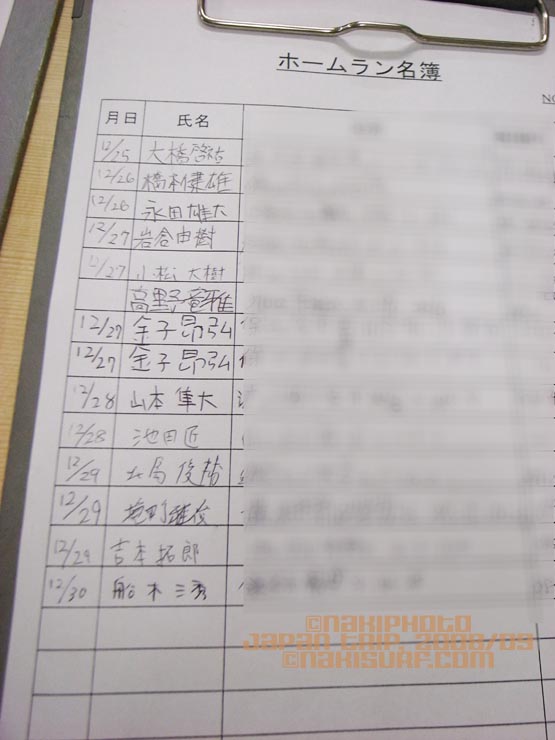 ホームラン名簿
NO
月日 氏名
12/25 大橋啓祐
12/26 橋本健雄
12/26 永田雄大
12/27 岩倉由樹
12/27 小松大樹
高野竜雅
12/27 金子昂弘
12/27 金子昂弘
12/28 山本隼大
12/28 池田匠
12/29
12/29
12/29 吉本拓郎
12/30 船木三秀
©NAKIPHOTO
JAPAN TRIP, 2008/09
©NAKISURF.COM